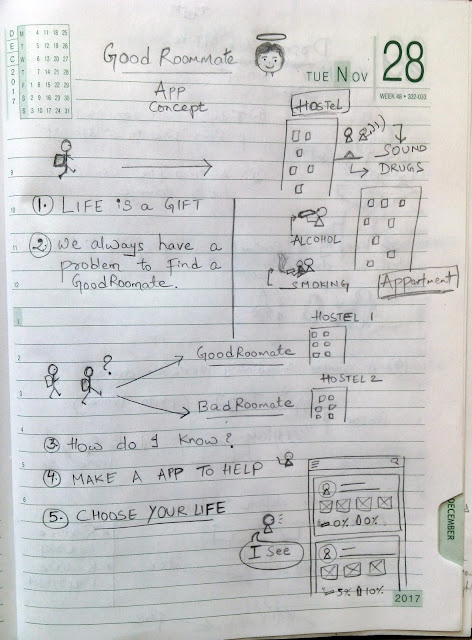 DEC 2017
M 4 11 18 25
T 5 12 19 26
W 6 13 20 27
T 7 14 21 28
F 1 8 15 22 29
S 2 9 16 23 30
S 3 10 17 24 31
Good Roommate
App
Concept
TUE NOV 28
WEEK 48 • 332-033
HOSTEL
SOUND
DRUGS
9
10
1. LIFE is a GIFT
11
2. We always have a
problem to find a
GoodRoomate.
12
ALCOHOL
SMOKING
Appartment
1
HOSTEL 1
2
?
GoodRoomate
HOSTEL 2
3
BadRoomate
4
3. How do I know?
5
4. MAKE A APP TO HELP
6
5. CHOOSE YOUR LIFE
I See
0% 0%
5% 10%
DECEMBER
2017